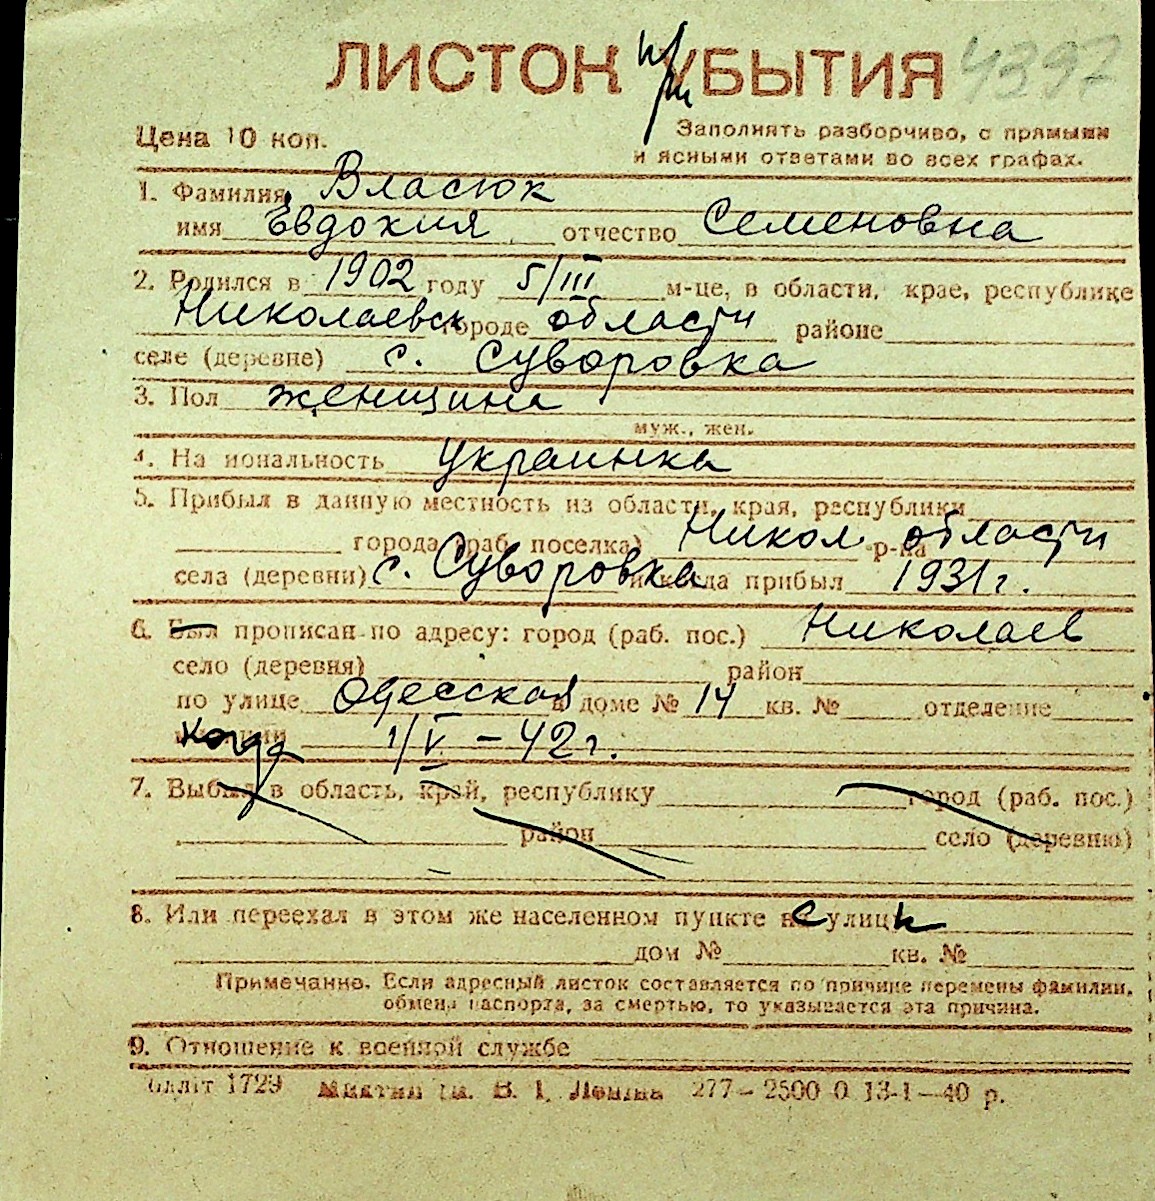 ЛИСТОК при УБЫТИЯ 4397
Цена 10 коп.
Заполнять разборчиво, с прямыми
и ясными ответами во всех графах.
1. Фамилия Власюк
имя Евдокия отчество Семеновна
2. Родился в 1902 году 5/III м-це, в области, крае, республике
Николаевск городе области районе
селе (деревне) с. Суворовка
3. Пол женщина
муж., жен.
4. На иональность украинка
5. Прибыл в данную местность из области, края, республики
города (раб. поселка) Никол. р-на области
села (деревни) с. Суворовка и когда прибыл 1931 г.
6. Был прописан по адресу: город (раб. пос.) Николаев
село (деревня) район
по улице Одесская в доме № 14 кв. № отделение
когда 1/V – 42 г.
7. Выбыл в область, край, республику город (раб. пос.)
район село (деревню)
8. Или переехал в этом же населенном пункте с улицы
дом № кв. №
Примечание. Если адресный листок составляется по причине перемены фамилии,
обмена паспорта, за смертью, то указывается эта причина.
9. Отношение к военной службе
блліт 1729 ім. В. І. Леніна 277–2500 0 13-1–40 р.